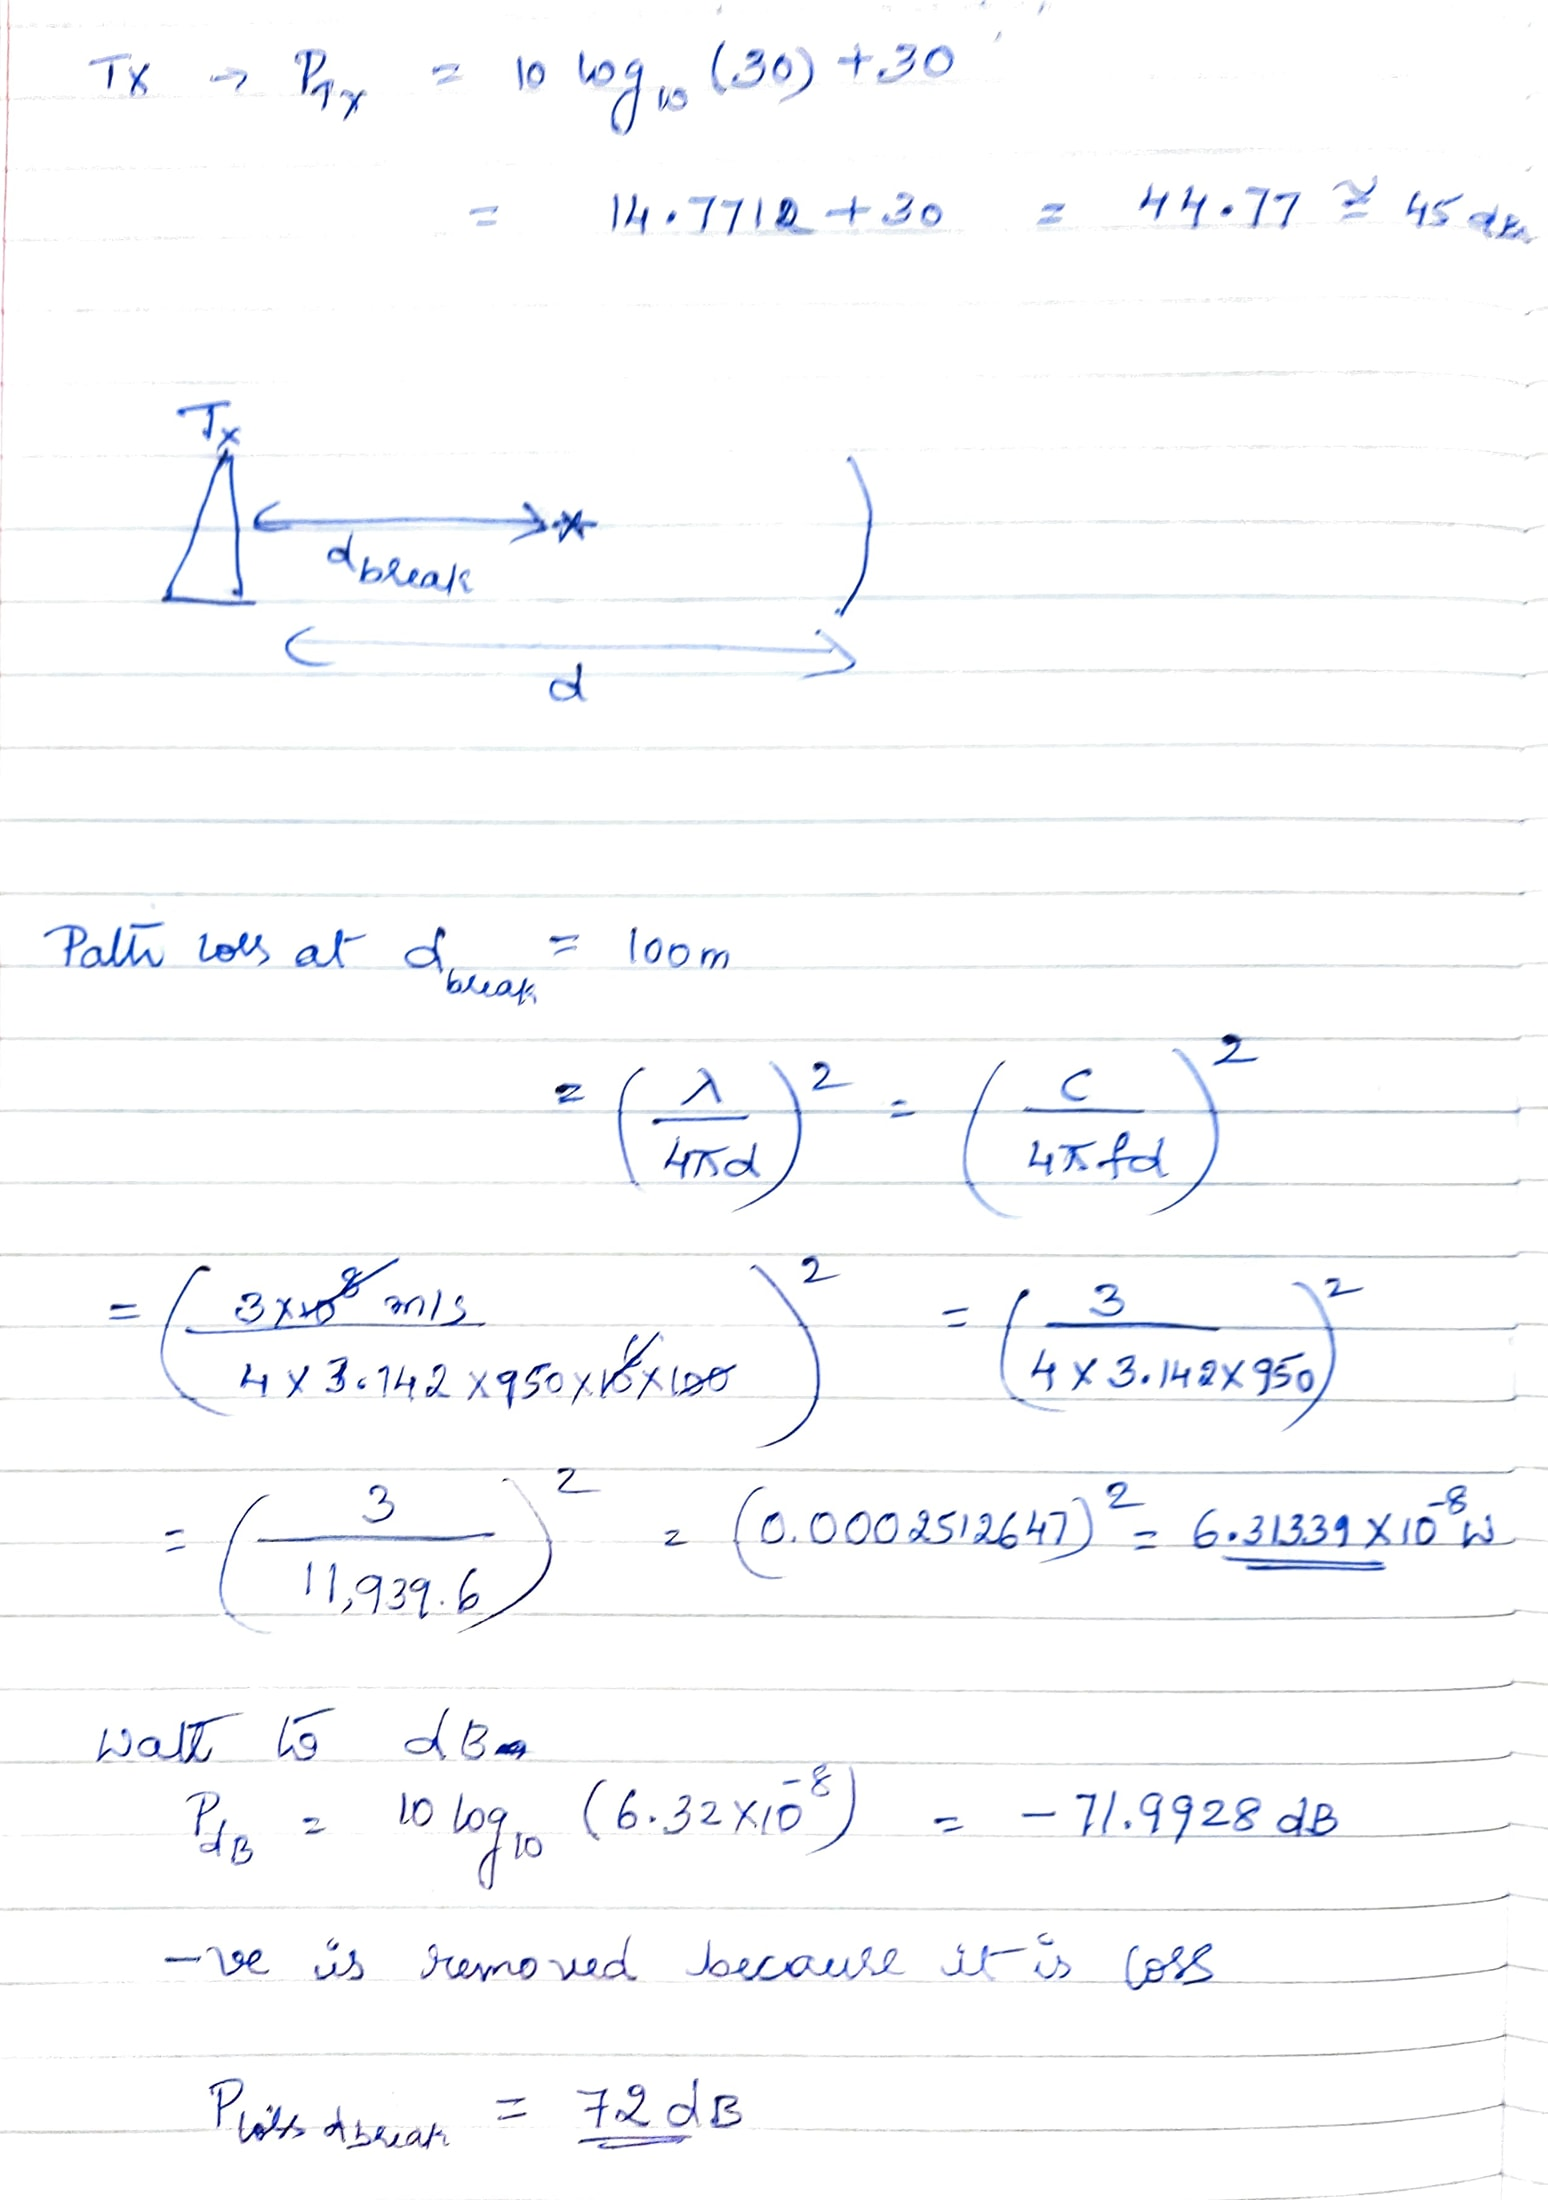 Tx → P_Tx = 10 log₁₀ (30) + 30
= 14.7712 + 30 = 44.77 ≅ 45 dBm
Tx
d_break
d
Path loss at d_break = 100m
= (λ / 4πd)² = (c / 4πfd)²
= (3×10⁸ m/s / 4 × 3.142 × 950 × 10⁶ × 100)² = (3 / 4 × 3.142 × 950)²
= (3 / 11,939.6)² = (0.0002512647)² = 6.31339 × 10⁻⁸ W
Watt to dB
P_dB = 10 log₁₀ (6.32 × 10⁻⁸) = -71.9928 dB
-ve is removed because it is loss
P_loss dbreak = 72 dB